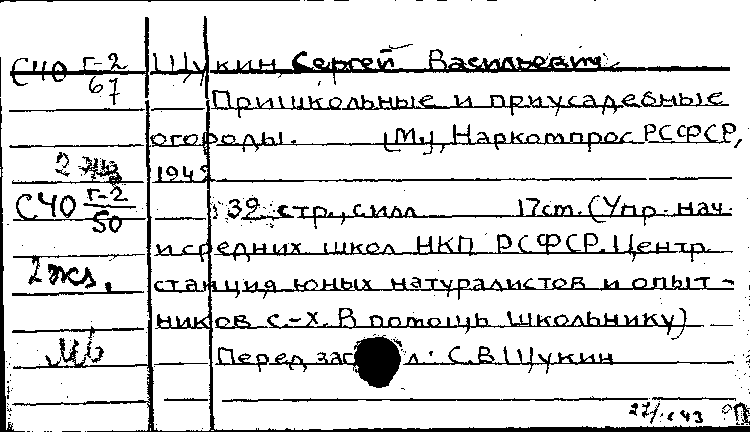 СЧО Г-2/67 Щукин, Сергей Васильевич.
Пришкольные и приусадебные
огороды. [М.], Наркомпрос РСФСР,
2 экз 1942.
СЧО Г-2/50 32 стр., с илл. 17 см. (Упр. нач.
и средних школ НКП РСФСР. Центр.
2 экз. станция юных натуралистов и опыт-
ников с.-х. В помощь школьнику)
Мб Перед загл.: С. В. Щукин